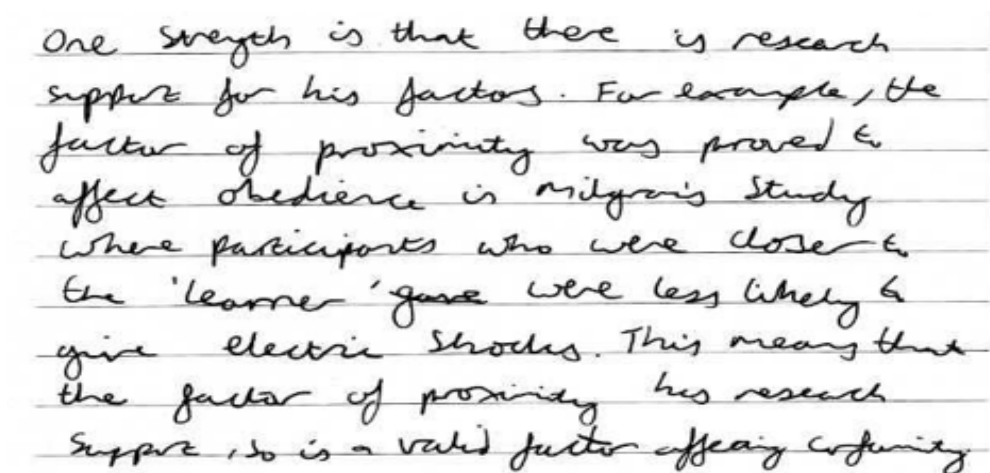 One Strength is that there is research
support for his factors. For example, the
factor of proximity was proved to
affect obedience in Milgram's Study
where participants who were closer to
the 'learner' gave were less likely to
give electric shocks. This means that
the factor of proximity has research
support, so is a valid factor affecting conformity